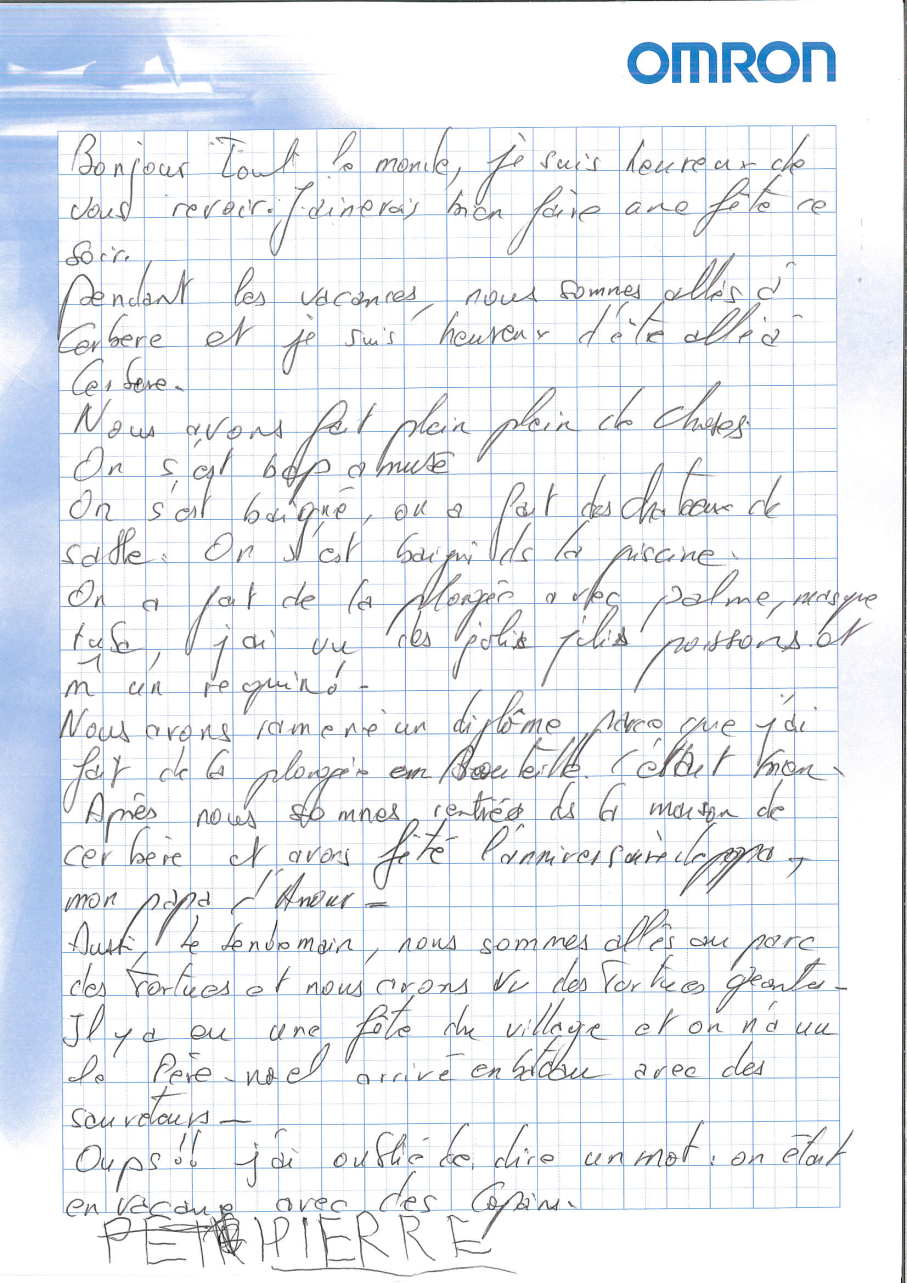 OMRON
Bonjour Tout le monde, je suis heureux de
vous revoir. J'aimerais bien faire une fête ce
soir.
Pendant les vacances, nous sommes allés à
Cerbere et je suis heureux d'être allé à
Cerbere.
Nous avons fait plein plein de choses
On s'est bcp amusé
On s'est baigné, on a fait des chateaux de
sable. On s'est baigné ds la piscine.
On a fait de la plongée avec palme, masque
tuba, j'ai vu des jolis jolis poissons et
m un requin
Nous avons ramené un diplôme, parce que j'ai
fait de la plongée en Bouteille. C'était bien.
Après nous sommes rentrés ds la maison de
cerbère et avons fêté l'anniversaire de papa,
mon papa d'Amour -
Aussi, le lendemain, nous sommes allés au parc
des Tortues et nous avons vu des Tortues géantes -
Il y a eu une fête du village et on a vu
le Père-noel arrivé en bateau avec des
sauveteurs -
Oups!! j'ai oublié de dire un mot : on était
en vacance avec des Copains.
PIERRE